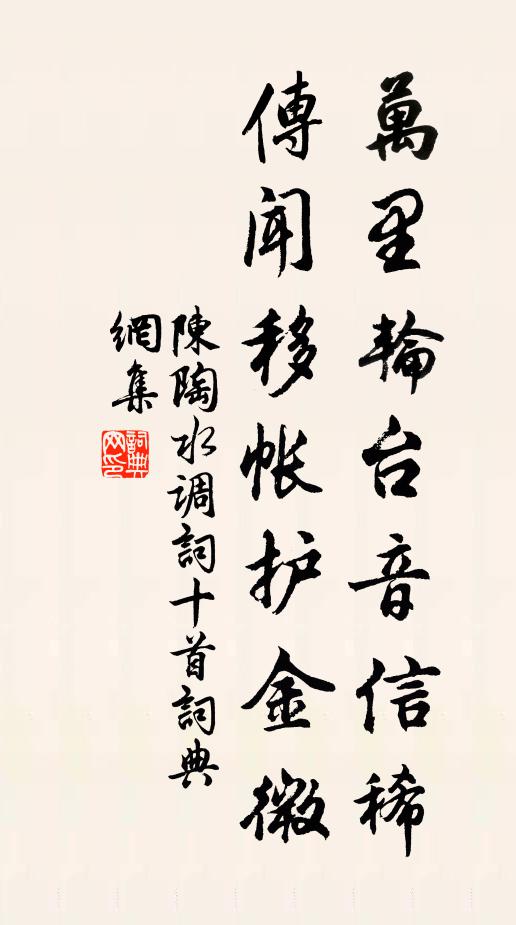 萬里輪台音信稀
傳聞移帐护金微
陳陶水调詞十首詞典
網集
詞典
网印